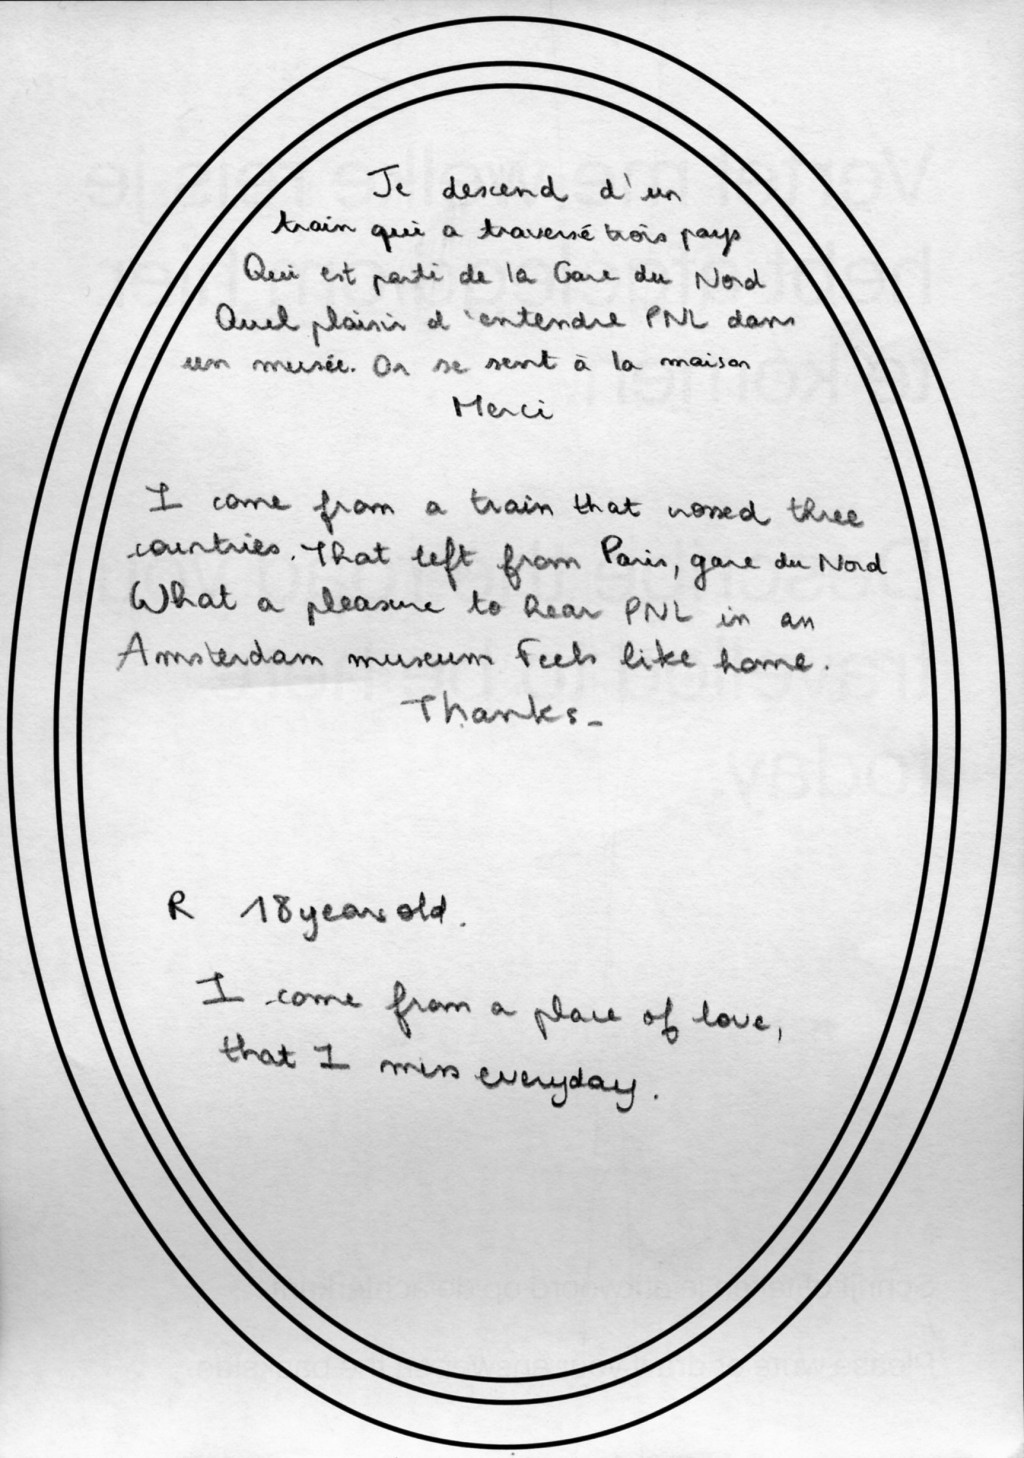 Je descend d'un
train qui a traversé trois pays
Qui est parti de la Gare du Nord
Quel plaisir d'entendre PNL dans
un musée. On se sent à la maison
Merci
I come from a train that crossed three
countries. That left from Paris, gare du Nord
What a pleasure to hear PNL in an
Amsterdam museum Feels like home.
Thanks_
R 18 years old.
I come from a place of love,
that I miss everyday.